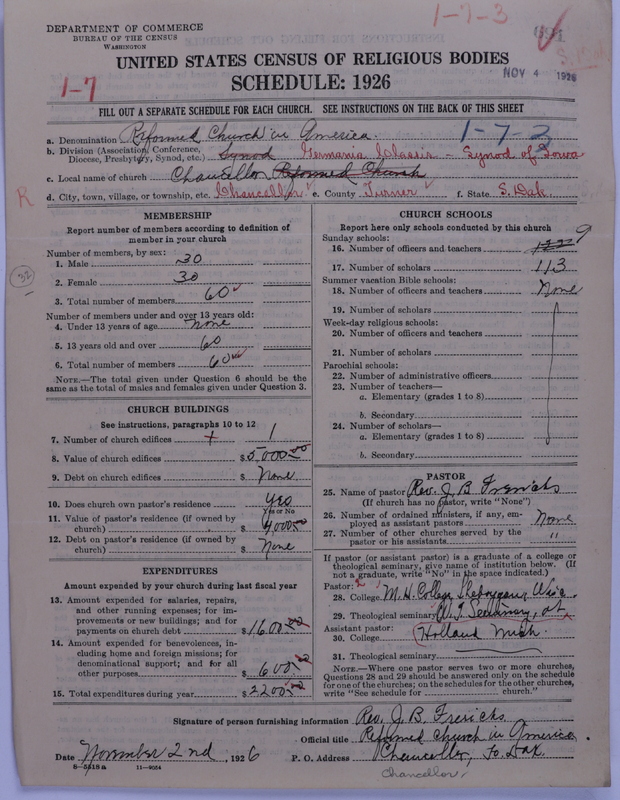 1-7-3
DEPARTMENT OF COMMERCE
BUREAU OF THE CENSUS
WASHINGTON
UNITED STATES CENSUS OF RELIGIOUS BODIES
NOV 4 1926
SCHEDULE: 1926
1-7
FILL OUT A SEPARATE SCHEDULE FOR EACH CHURCH. SEE INSTRUCTIONS ON THE BACK OF THIS SHEET
a. Denomination Reformed Church in America.
1-7-3
b. Division (Association, Conference, Diocese, Presbytery, Synod, etc.) Synod Germania Classis - Synod of Iowa
c. Local name of church Chancellor Reformed Church
d. City, town, village, or township, etc. Chancellor e. County Turner f. State S. Dak.
R
32
MEMBERSHIP
Report number of members according to definition of
member in your church
Number of members, by sex:
1. Male 30
2. Female 30
3. Total number of members 60
Number of members under and over 13 years old:
4. Under 13 years of age None
5. 13 years old and over 60
6. Total number of members 60
NOTE.—The total given under Question 6 should be the
same as the total of males and females given under Question 3.
CHURCH BUILDINGS
See instructions, paragraphs 10 to 12
7. Number of church edifices 1
8. Value of church edifices $5000.00
9. Debt on church edifices $ None
10. Does church own pastor's residence Yes
Yes or No
11. Value of pastor's residence (if owned by
church) $ 4000.00
12. Debt on pastor's residence (if owned by
church) $ None
EXPENDITURES
Amount expended by your church during last fiscal year
13. Amount expended for salaries, repairs,
and other running expenses; for im-
provements or new buildings; and for
payments on church debt $1600.00
14. Amount expended for benevolences, in-
cluding home and foreign missions; for
denominational support; and for all
other purposes $ 600.00
15. Total expenditures during year $2200.00
CHURCH SCHOOLS
Report here only schools conducted by this church
Sunday schools:
16. Number of officers and teachers 9
17. Number of scholars 113
Summer vacation Bible schools:
18. Number of officers and teachers None
19. Number of scholars
Week-day religious schools:
20. Number of officers and teachers
21. Number of scholars
Parochial schools:
22. Number of administrative officers
23. Number of teachers—
a. Elementary (grades 1 to 8)
b. Secondary
24. Number of scholars—
a. Elementary (grades 1 to 8)
b. Secondary
PASTOR
25. Name of pastor Rev. J. B. Frerichs
(If church has no pastor, write "None")
26. Number of ordained ministers, if any, em-
ployed as assistant pastors None
27. Number of other churches served by the
pastor or his assistants "
If pastor (or assistant pastor) is a graduate of a college or
theological seminary, give name of institution below. (If
not a graduate, write "No" in the space indicated.)
Pastor:
28. College M. H. College Sheboygan, Wisc.
29. Theological seminary W. T. Seminary, at
Assistant pastor:
30. College (Holland Mich.
31. Theological seminary
NOTE.—Where one pastor serves two or more churches,
Questions 28 and 29 should be answered only on the schedule
for one of the churches; on the schedules for the other churches,
write "See schedule for church."
Signature of person furnishing information Rev. J. B. Frerichs
Official title Reformed Church in America.
Date November 2nd, 1926 P. O. Address Chancellor, So. Dak.
8-5518a 11-9054
Chancellor